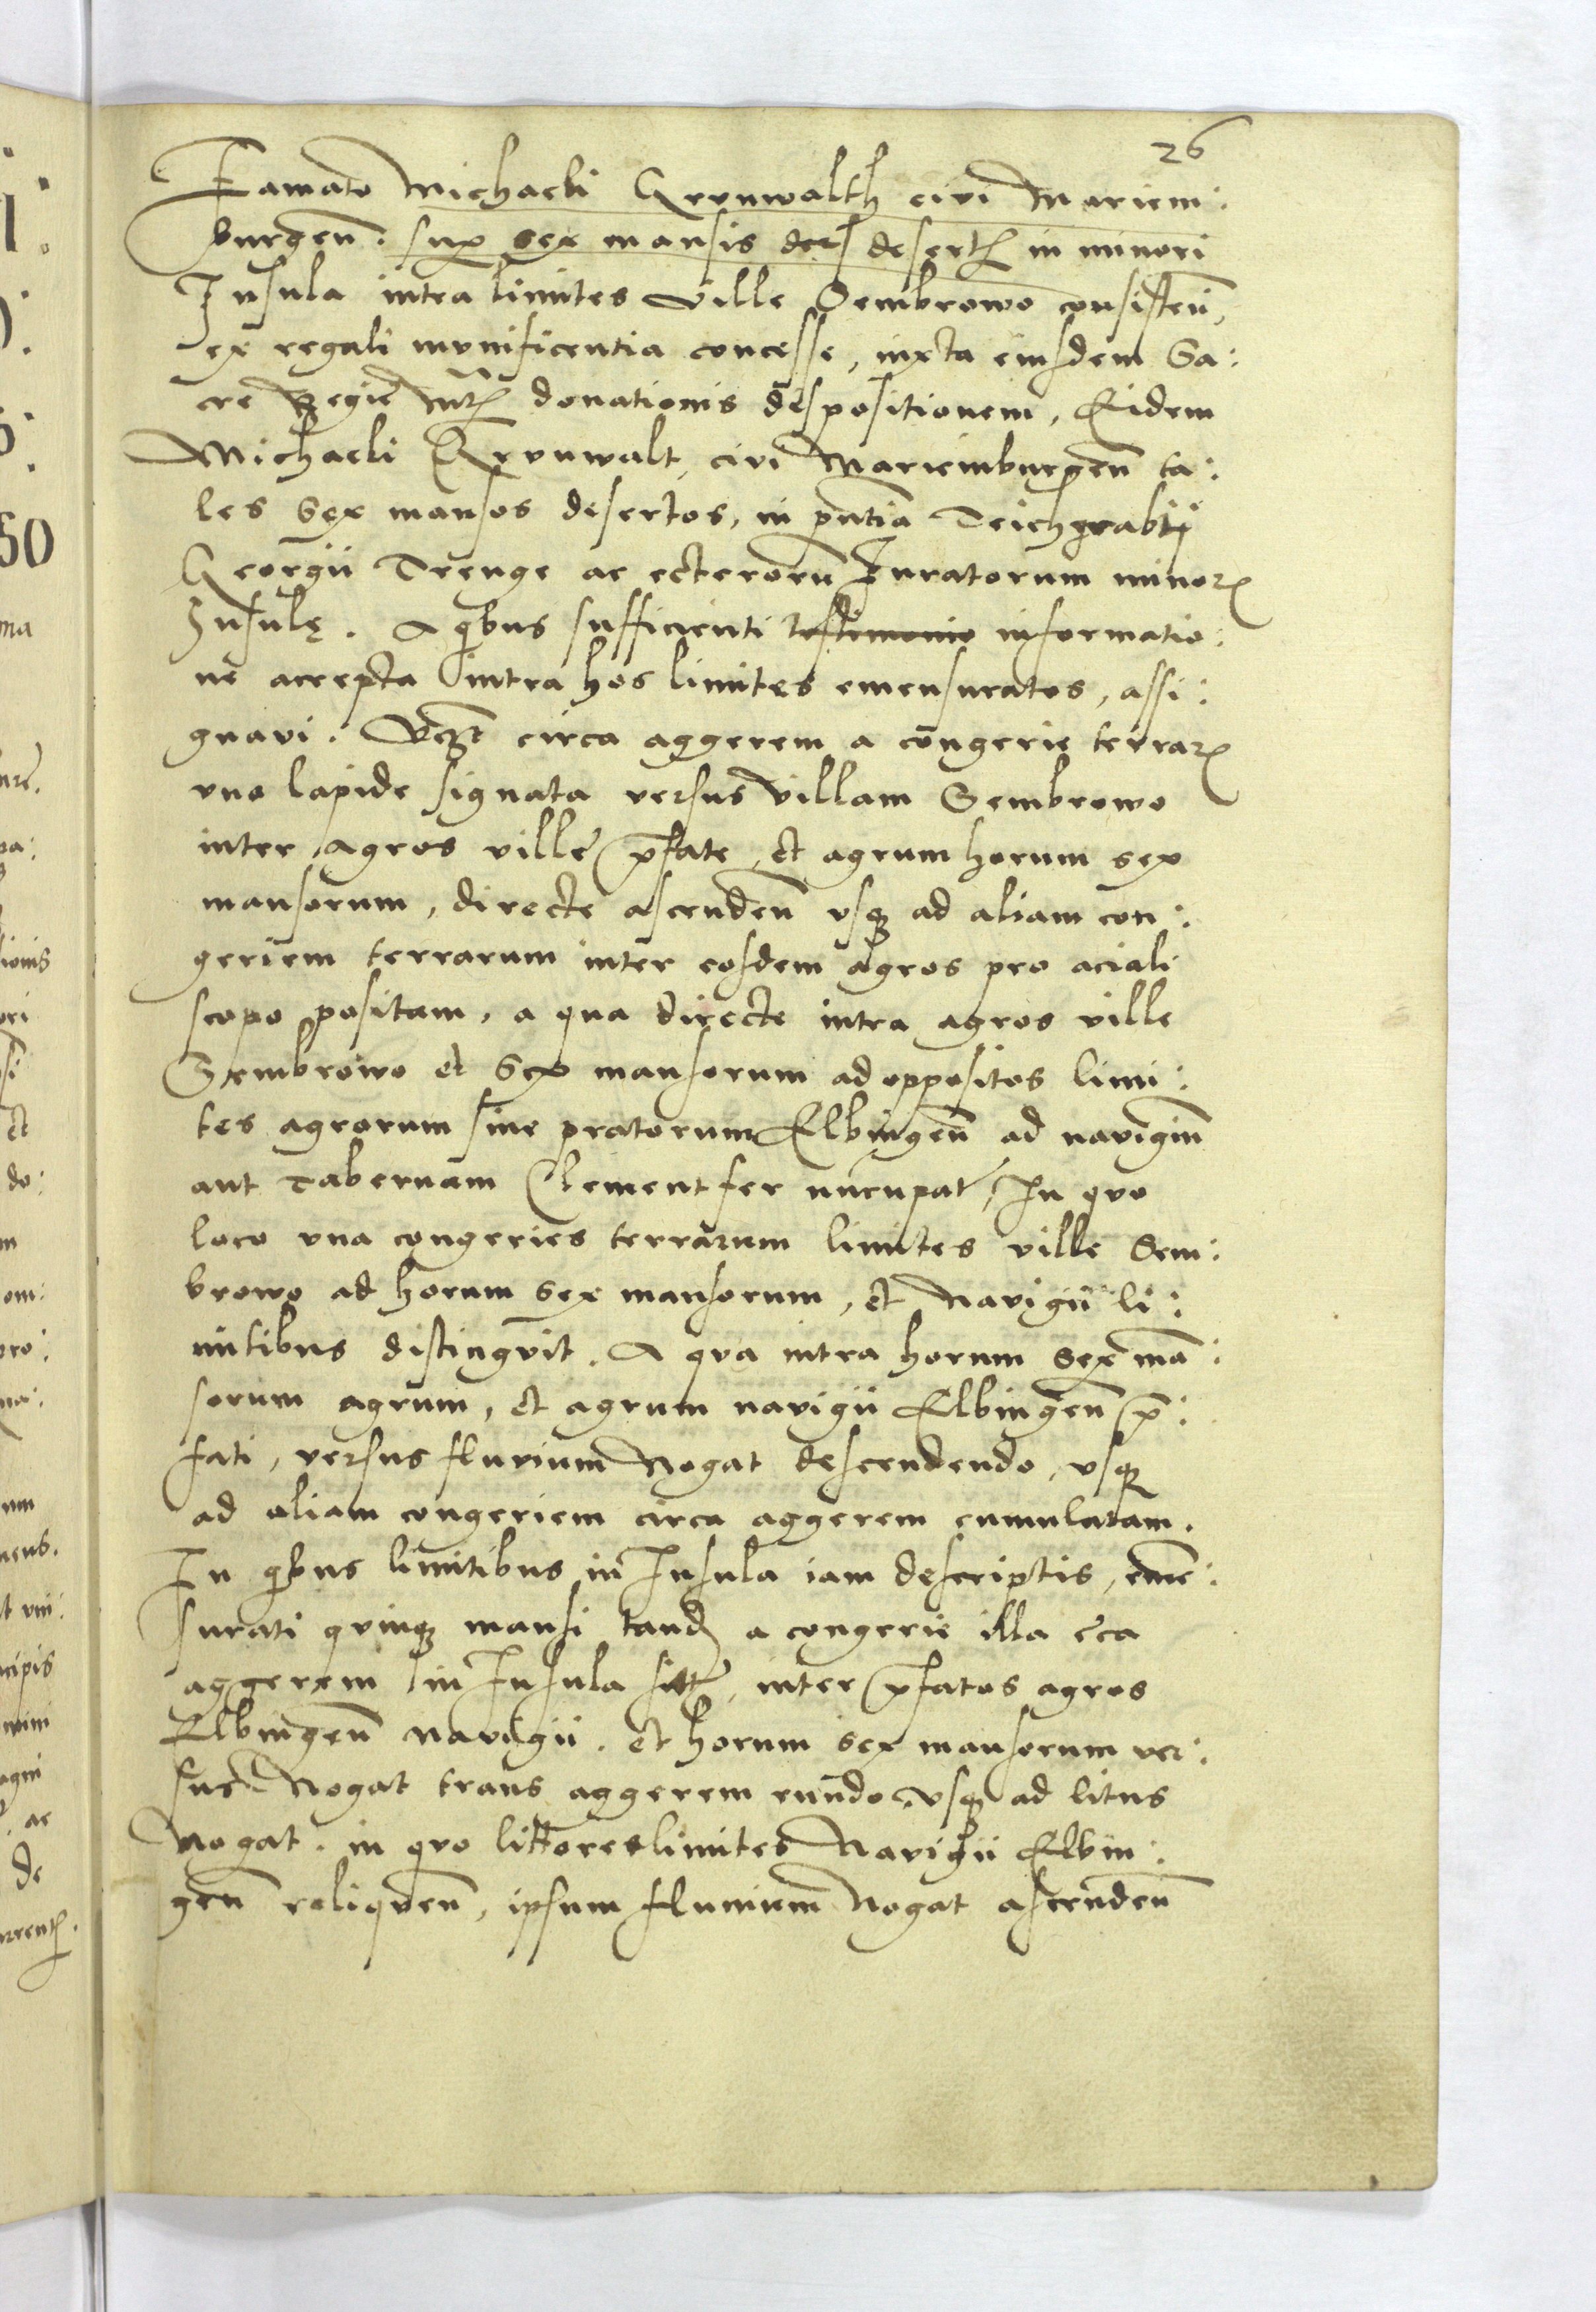 26
Famato Michaeli Grunwalth civi Mariem:
burgen̄. sup sex mansis desertꝭ in minori
Insula intra limites ville Sembrowo consisten̄,
ex regali munificentia concesse, iuxta eiusdem Sa:
cre Regie Mtꝭ donationis despositionem, Eidem
Michaeli Grunwalt, civi Mariemburgen̄ ta:
les Sex mansos desertos, in pn̄tia Teichgrabij
Georgii Trenge ac ceterorū Iuratorum minorꝭ
Insulę. A qbus sufficienti testimonio informatio:
ne accepta intra hos limites emensuratos, assi:
gnavi. Vcꝫt circa aggerem a congerie terrarꝭ
vno lapide signata versus villam Sembrowo
inter agros ville p̄fate, et agrum horum sex
mansorum, directe ascenden̄ vsqꝫ ad aliam con:
geriem terrarum inter eosdem agros pro aciali
scopo positam, a qua directe intra agros ville
Sembrowo et Sex mansorum ad oppositos limi:
tes agrorum siue pratorum Elbingen̄ ad navigiū
aut Tabernam Clementfer nūcupat, In quo
loco vna congeries terrarum limites ville Sem:
browo ad horum Sex mansorum, et Navigii li:
mitibus distingvit. A qva intra horum Sex mā:
sorum agrum, et agrum navigii Elbingen̄ p̄:
fati, versus fluvium Nogat descendendo, vsqꝫ
ad aliam congeriem circa aggerem cumulatam.
In qbus limitibus in Insula iam descriptis, emē:
surati qvinqꝫ mansi tandē a congerie illa circa
aggerem in Insula, inter p̄fatos agros
Elbingen̄ navigii. et horum sex mansorum ver:
sus Nogat trans aggerem eundo, vsqꝫ ad litus
Nogat. in qvo littore limites Navigii Elbin:
gen̄ reliqven̄, ipsum fluuium Nogat ascenden̄